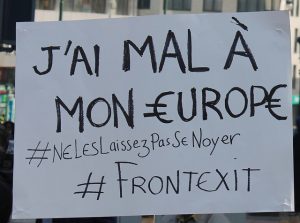 J'AI MAL À
MON €UROP€
#NELESLAISSEZPASSENOYER
# FRONTEXIT